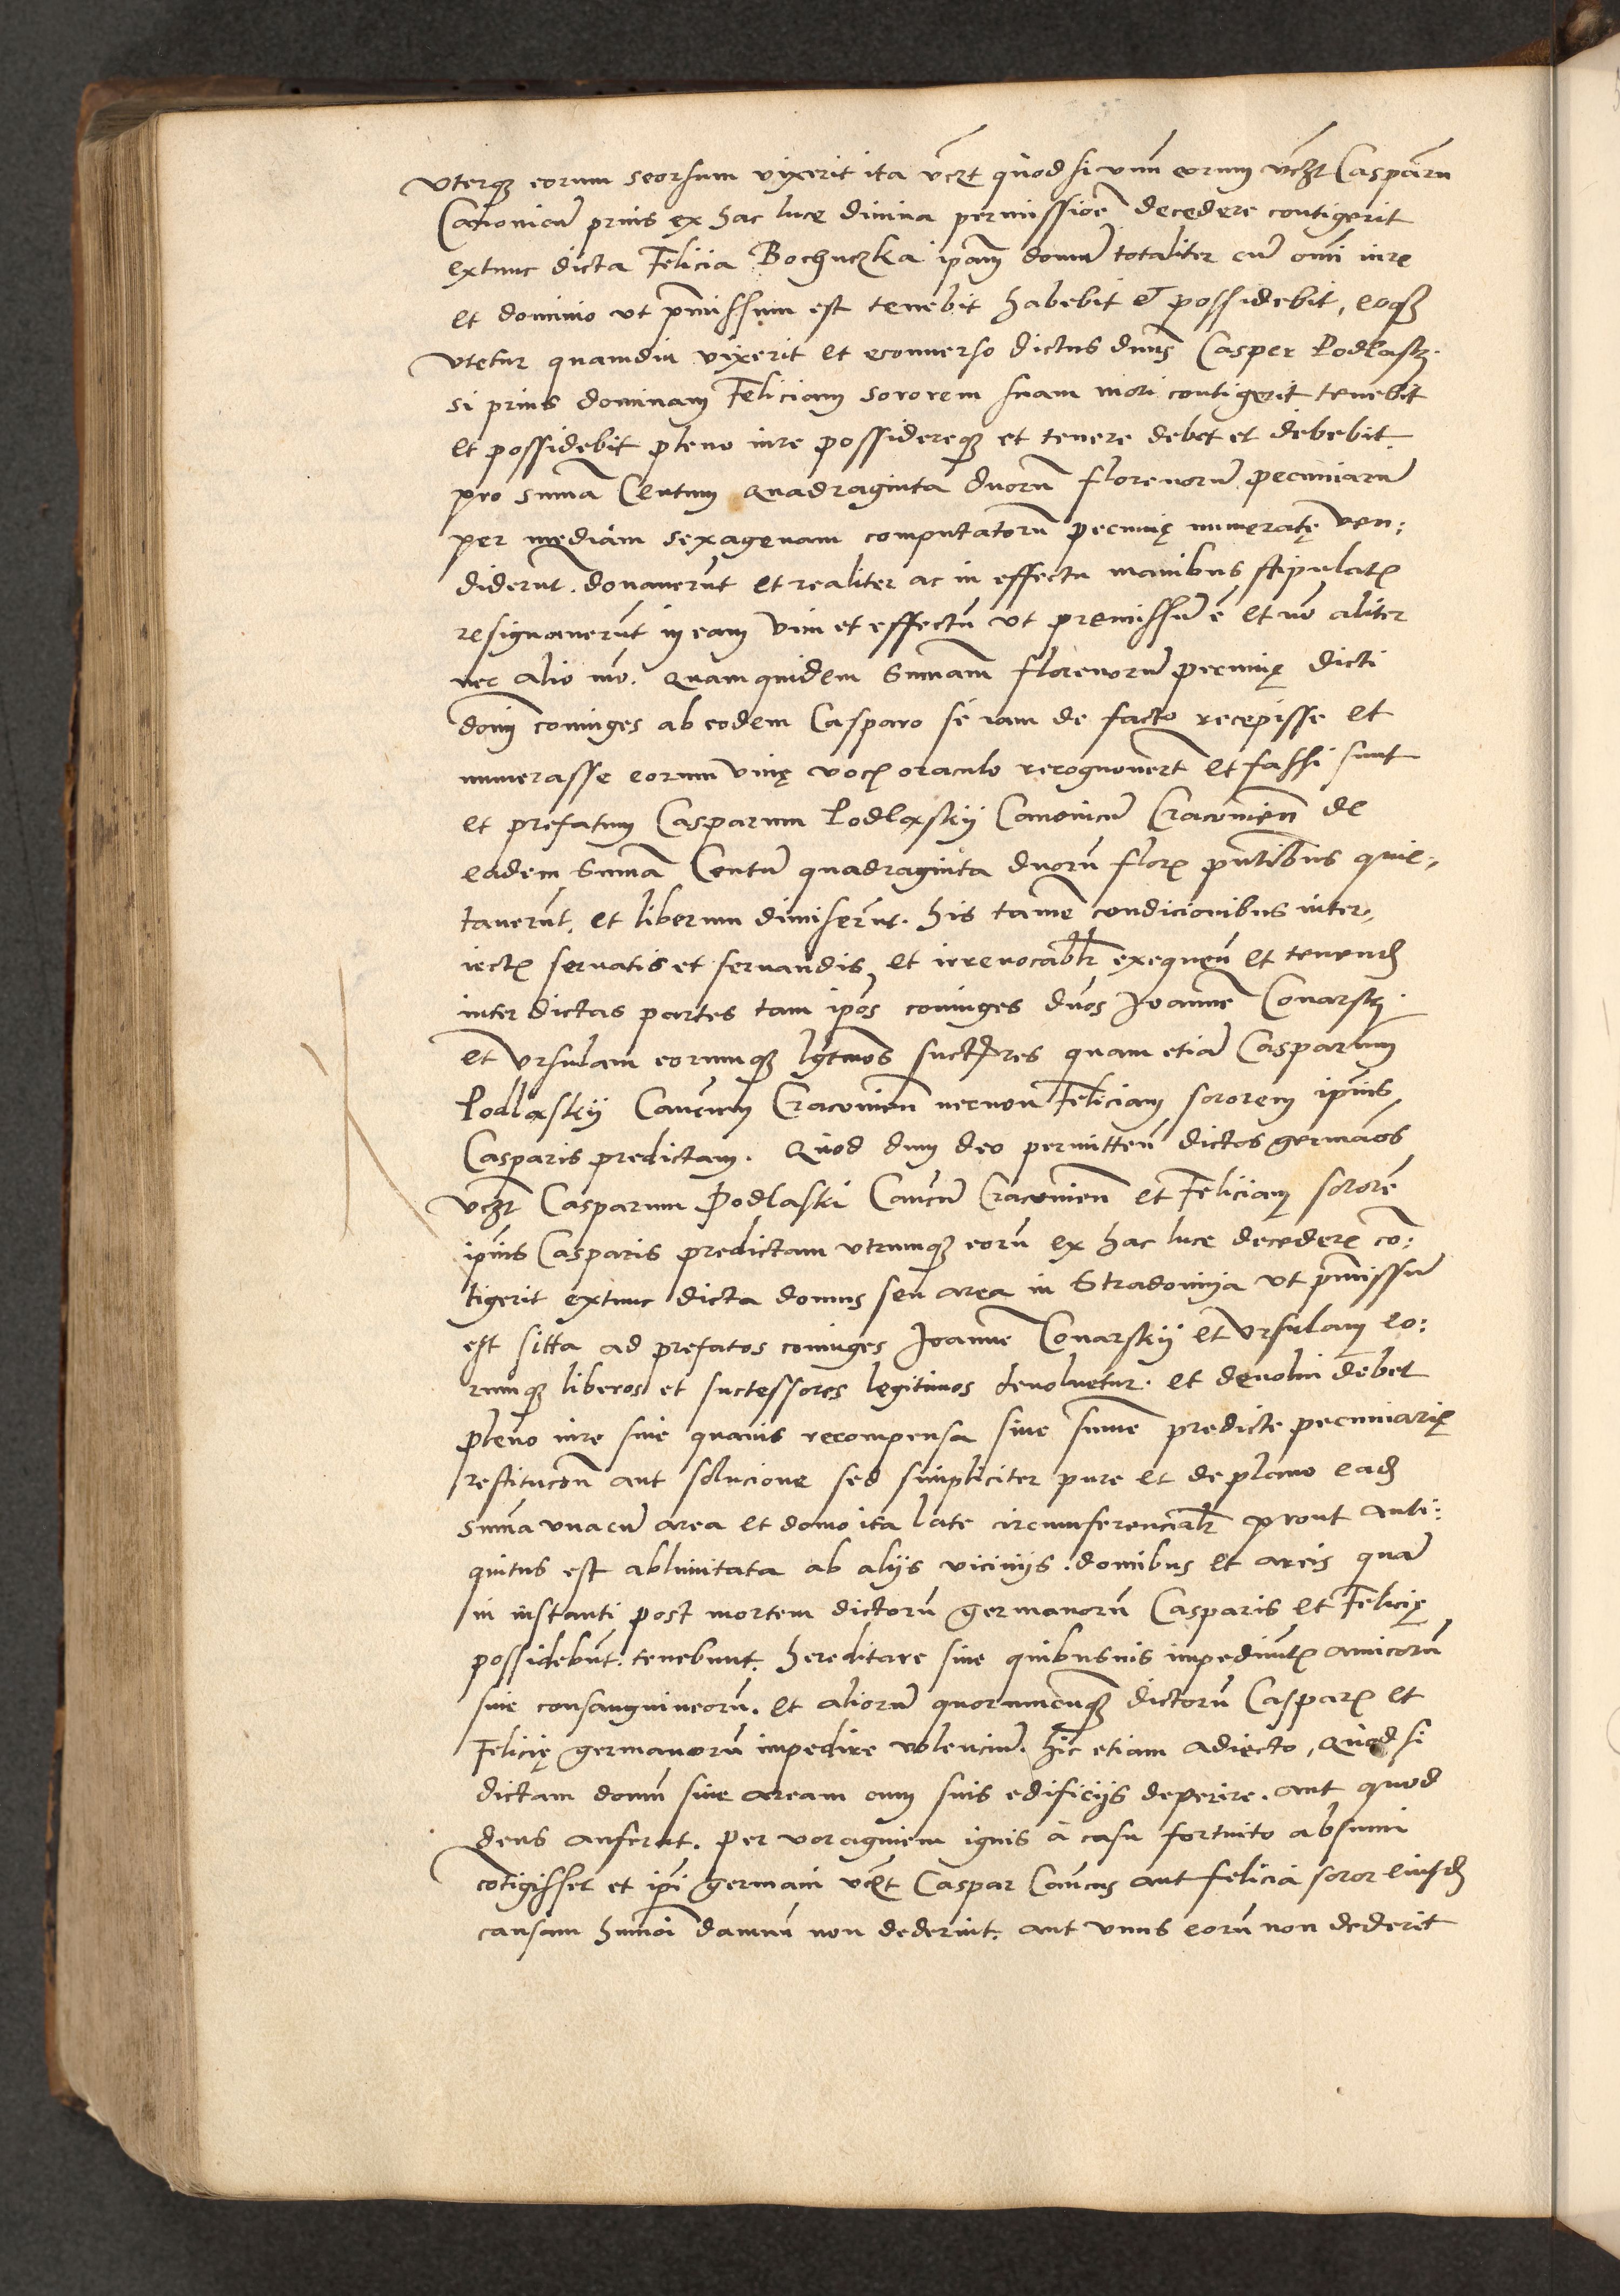 Vterq3 eorum seorsum vixerit ita vczt quod si vnu eorum vczt Casparu
Canonicu prius ex hac luce diuina permissioe decedere contigerit
extunc dicta Felicia Bochuczka ipam domu totaliter cu omi iure
et dominio vt pmissum est tenebit habebit et possidebit, eoq3
vtetur quamdiu vixerit et econuerso dictus dnus Casper Podlasky
si prius dominam Feliciam sororem suam mori contigerit tenebit
et possidebit pleno iure possidereq3 et tenere debet et debebit
pro suma Centum quadraginta duoru florenoru pecuniaru
per mediam sexagenam computatoru pecunię numeratę ven:
diderut. donauerut et realiter ac in effectu manibus stipulatis
resignauerut in eam vim et effectu vt premissu e et no aliter
nec alio mo. Quamquidem Sumam florenoru pecunię dicti
domi coniuges ab eodem Casparo se iam de facto recepisse et
numerasse eorum viuę vocis oraculo recognouert et fassi sunt
et prefatum Casparum Podlaskij Canonicu Cracouien de
eadem Suma Centu quadraginta duoru flor pntibus quie-
tauerut. et liberum dimiserut. his tame condicionibus inter-
iectis seruatis et seruandis et irreuocablr exequen et tenend
inter dictas partes tam ipos coniuges dnos Joanne Conarsky
et Vrsulam eorumq3 lgtmos succres quam etia Casparum
Podlaskij Cancum Cracouien necnon Feliciam sororem ipius
Casparis predictam. Quod dum deo permitten dictos germaos
vczt Casparum Podlaski Cancu Cracouien et Feliciam sorore
ipius Casparis predictam vtrumq3 eoru ex hac luce decedere co:
tigerit extunc dicta domus seu area in Stradomija vt pmissu
est sitta ad prefatos coniuges Joanne Conarskij et Vrsulam eo:
rumq3 liberos et successores legitimos deuoluetur. et deuolui debet
pleno iure siue quauis recompensa siue sume predicte pecuniarię
restitucon aut solucione sed simpliciter pure et de plano ead
suma vnacu area et domo ita late circumferencialr prout anti:
quitus est ablimitata ab alijs vicinijs. domibus et areis qua
in instanti post mortem dictoru germanoru Casparis et Felicię
possidebut. tenebunt. hereditare sine quibusuis impedimtis amicoru
siue consanguineoru. et alioru quorumcunq3 dictoru Casparis et
Felicię germanoru impedire volenciu. hic etiam adiecto, quod si
dictam domu siue aream cum suis edificijs deperire. aut quod
deus auferat. per voraginem ignis a casu fortuito absumi
cotigisset et ipi germani vczt Caspar Cancus aut Felicia soror eiusd
causam humoi damnu non dederint. aut vnus eoru non dederit